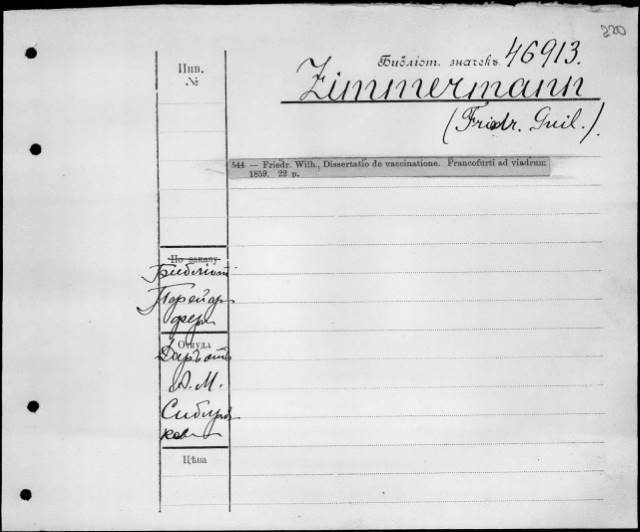 220
Библіот. значекъ 46913.
Zimmermann
(Friedr. Guil.).
Инв.
№
544 — Friedr. Wilh., Dissertatio de vaccinatione. Francofurti ad viadrum
1859. 22 p.
По заказу
Библіот
Откуда
Даръ отъ
А. М.
Сибиря
кова
Цѣна